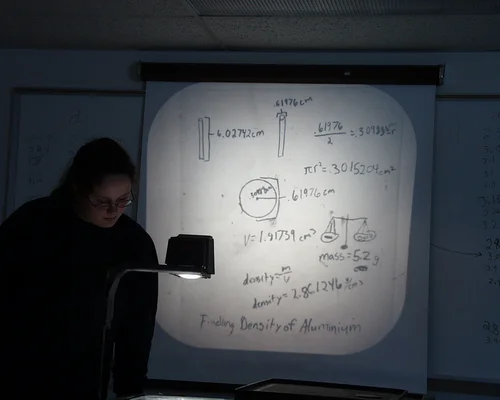 .61976 cm
6.02742cm
.61976
2
πr² = .3015204cm²
.61976 cm
V = 1.81739 cm³
mass = 5.2 g
density = m
V
density = 2.861246 g/cm³
Finding Density of Aluminium